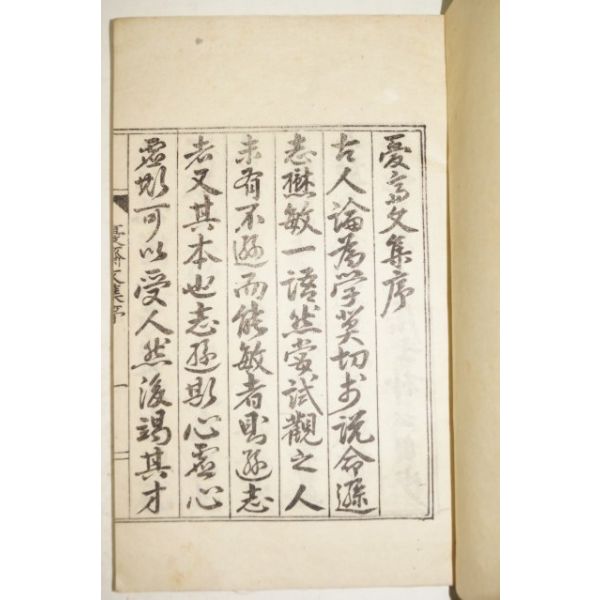 憂斎文集序
古人論為学莫切於説命遜
志懋敏一語然嘗試觀之人
未有不遜而能敏者則遜志
者又其本也志遜則心虛心
虛則可以受人然後竭其才